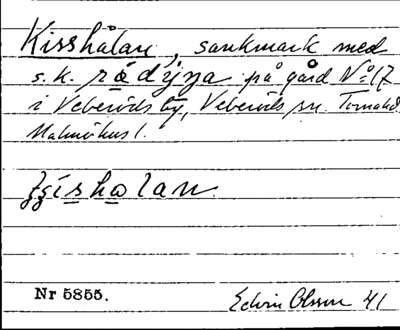 Kisshålan, sankmark med
s.k. rådýŋa på gård Nº 17
i Veberöds by, Veberöds sn. Torna hd.
Malmöhus l.
Nr 5855.
Edvin Olsson 41